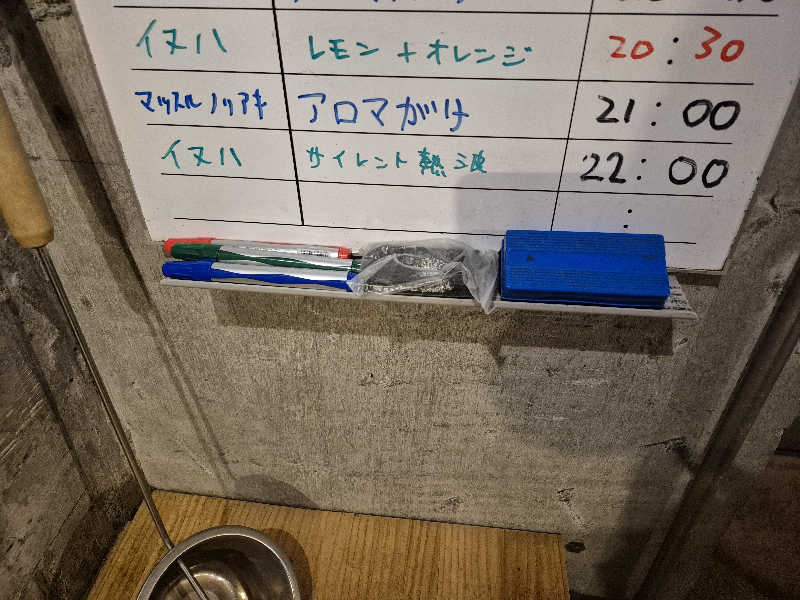 イヌハ レモン+オレンジ 20:30
マッスルノリアキ アロマがけ 21:00
イヌハ サイレント熱波 22:00
: